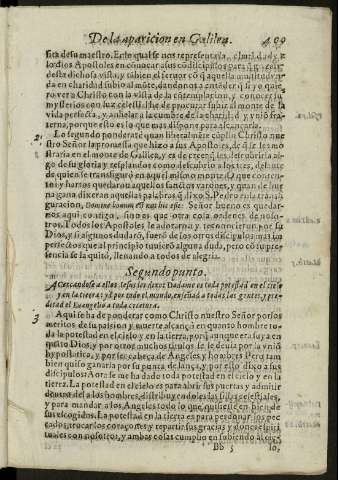 De la aparicion en Galilea. 409
sita de su maestro. En lo qual se nos representa la charidad y
los dios Apostoles en conuocar sus condicipulos para q̃ gozas
desta dichosa vista, y subien el feruor cõ q̃ aquella multitud
da en charidad subio al mõte, dandonos a entẽder q̃ si yo quie
ro ver a Christo con la vista de la cõtemplacion, y conocer
mysterios con luz celestial he de procurar subir al monte de la
vida perfecta, y anhelar a la cumbre de la charidad y vniõ fra
terna, porque esto es lo que mas dispone para alcançarla.
2. Lo segundo ponderarè quan liberalmẽte cũplio Christo nue
stro Señor la promessa que hizo a sus Apostoles, de q̃ se les mo
straria en el monte de Galilea, y es de creer q̃ les descubriria al
go de su gloria y resplandor como descubrio a los tres, delante
de quien se transfigurò en aquel mismo mõte: o que conten
to y hartos quedarian aquellos sanctos varones, y quan de bue
na gana dixeran aquellas palabras q̃ dixo S. Pedro en la transfi
guracion, Domine bonum est nos hic esse: Señor bueno es quedar-
nos aqui contigo, sino es que otra cosa ordenes de noso-
tros. Todos los Apostoles le adoraron y reconocieron por su
Dios, y si algunos dudarõ, fuerõ de los otros discipulos mas im
perfectos que al principio tuuierõ alguna duda, pero cõ su pre
sencia se la quitò, llenando a todos de alegria.
Segundo punto.
Acercandose a ellos Iesus les dixo: Dadame es toda potestad en el cielo
y en la tierra: yd por todo el mundo, enseñad a todas las gentes, y pre
dicad el Euangelio a toda criatura.
3 Aqui se ha de ponderar como Christo nuestro Señor por los
meritos de su passion y muerte alcançò en quanto hombre to
da la potestad en el cielo, y en la tierra, porq̃ aunque era suya en
quãto Dios, y por otros muchos titulos se le deuia por la vniõ
hypostatica, y por ser cabeça de Angeles y hombres Pero tam
bien quiso ganarla por su punta de lança, y por esso dixo a sus
discipulos: Aora se me ha dado toda potestad en el cielo y en la
tierra. La potestad en el cielo es para abrir sus puertas y admitir
dentro del a los hombres, distribuyendoles las sillas celestiales,
y para mandar a los Angeles todo lo que quisiere en bien de
sus escogidos. La potestad en la tierra es para perdonar los pec
cados, trocar los coraçones y repartir sus gracias y dones espiri
tuales con nosotros, y ambas cosas cumplio en subiendo al cie-
Bb 5 lo,